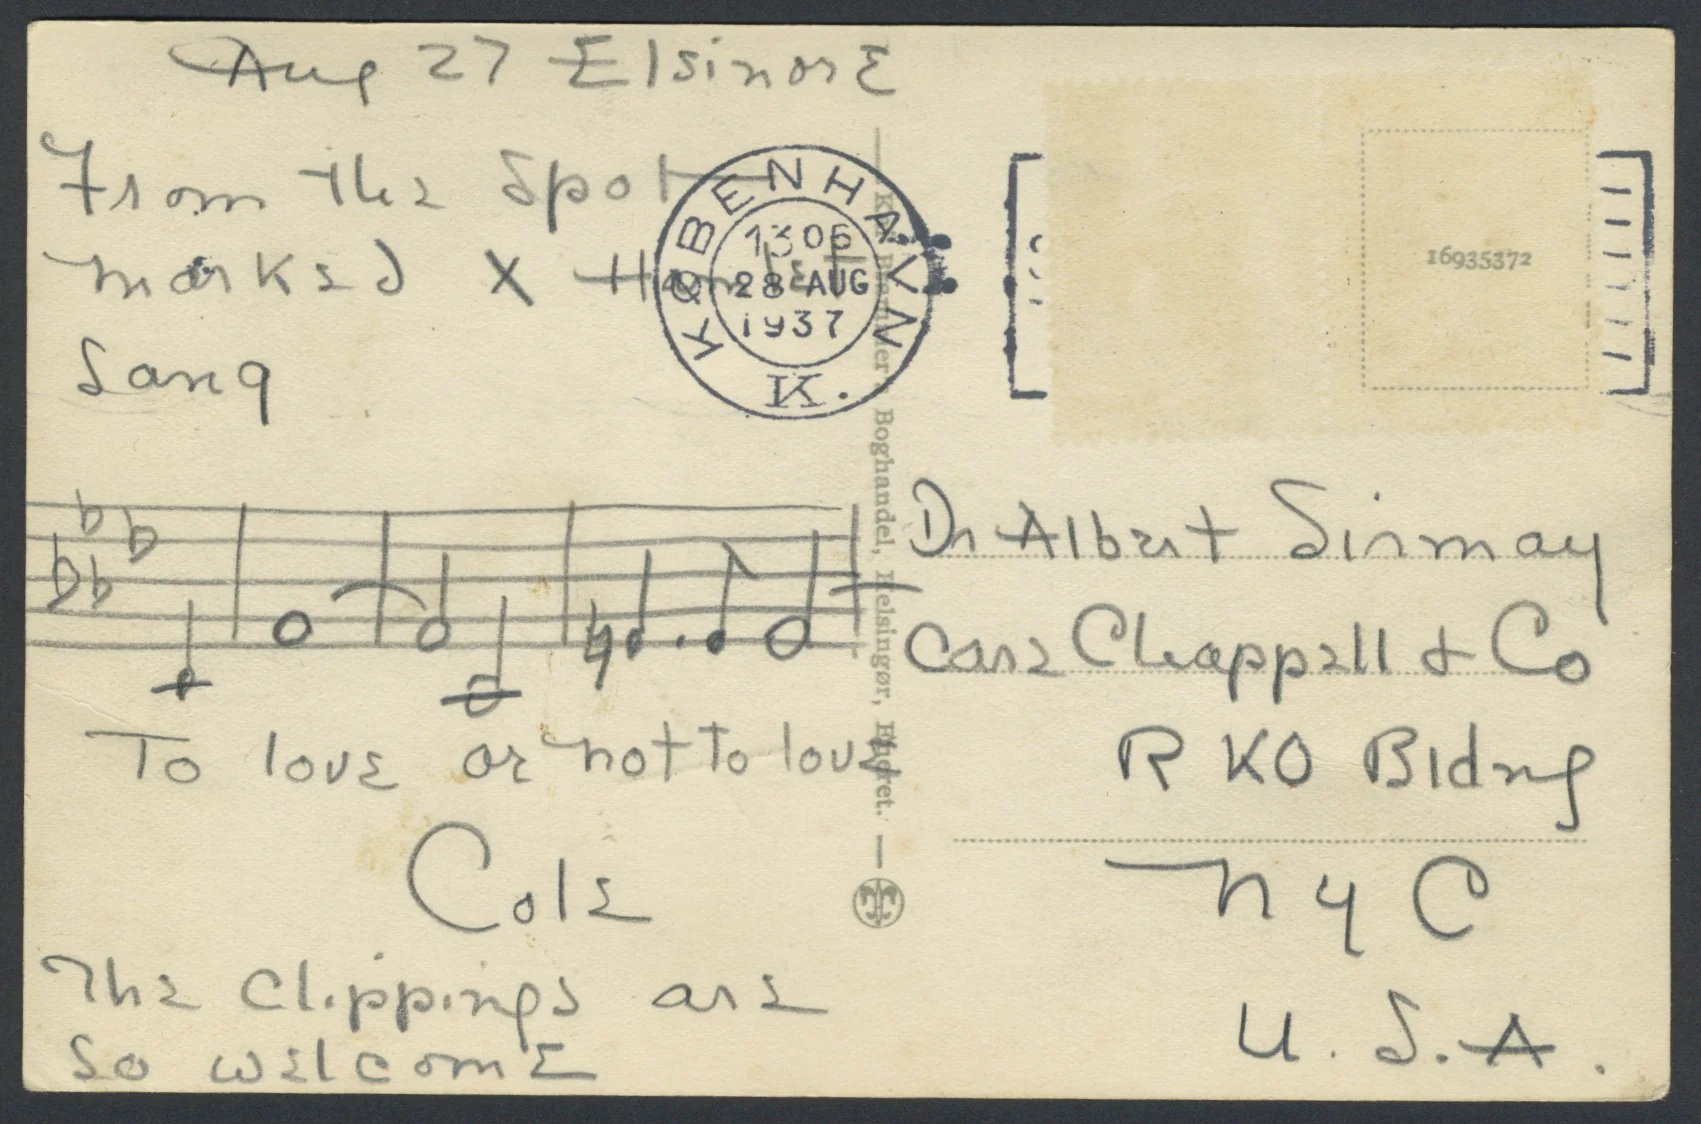 Aug 27 Elsinore
From the Spot
marked X Hamlet
Sang
To love or not to love
Cole
The clippings are
so welcome
KØBENHAVN
1306
28 AUG
1937
K.
Boghandel, Helsingør, Eneret.
16935372
Dr Albert Sirmay
Care Chappell & Co
RKO Bldng
NYC
U.S.A.